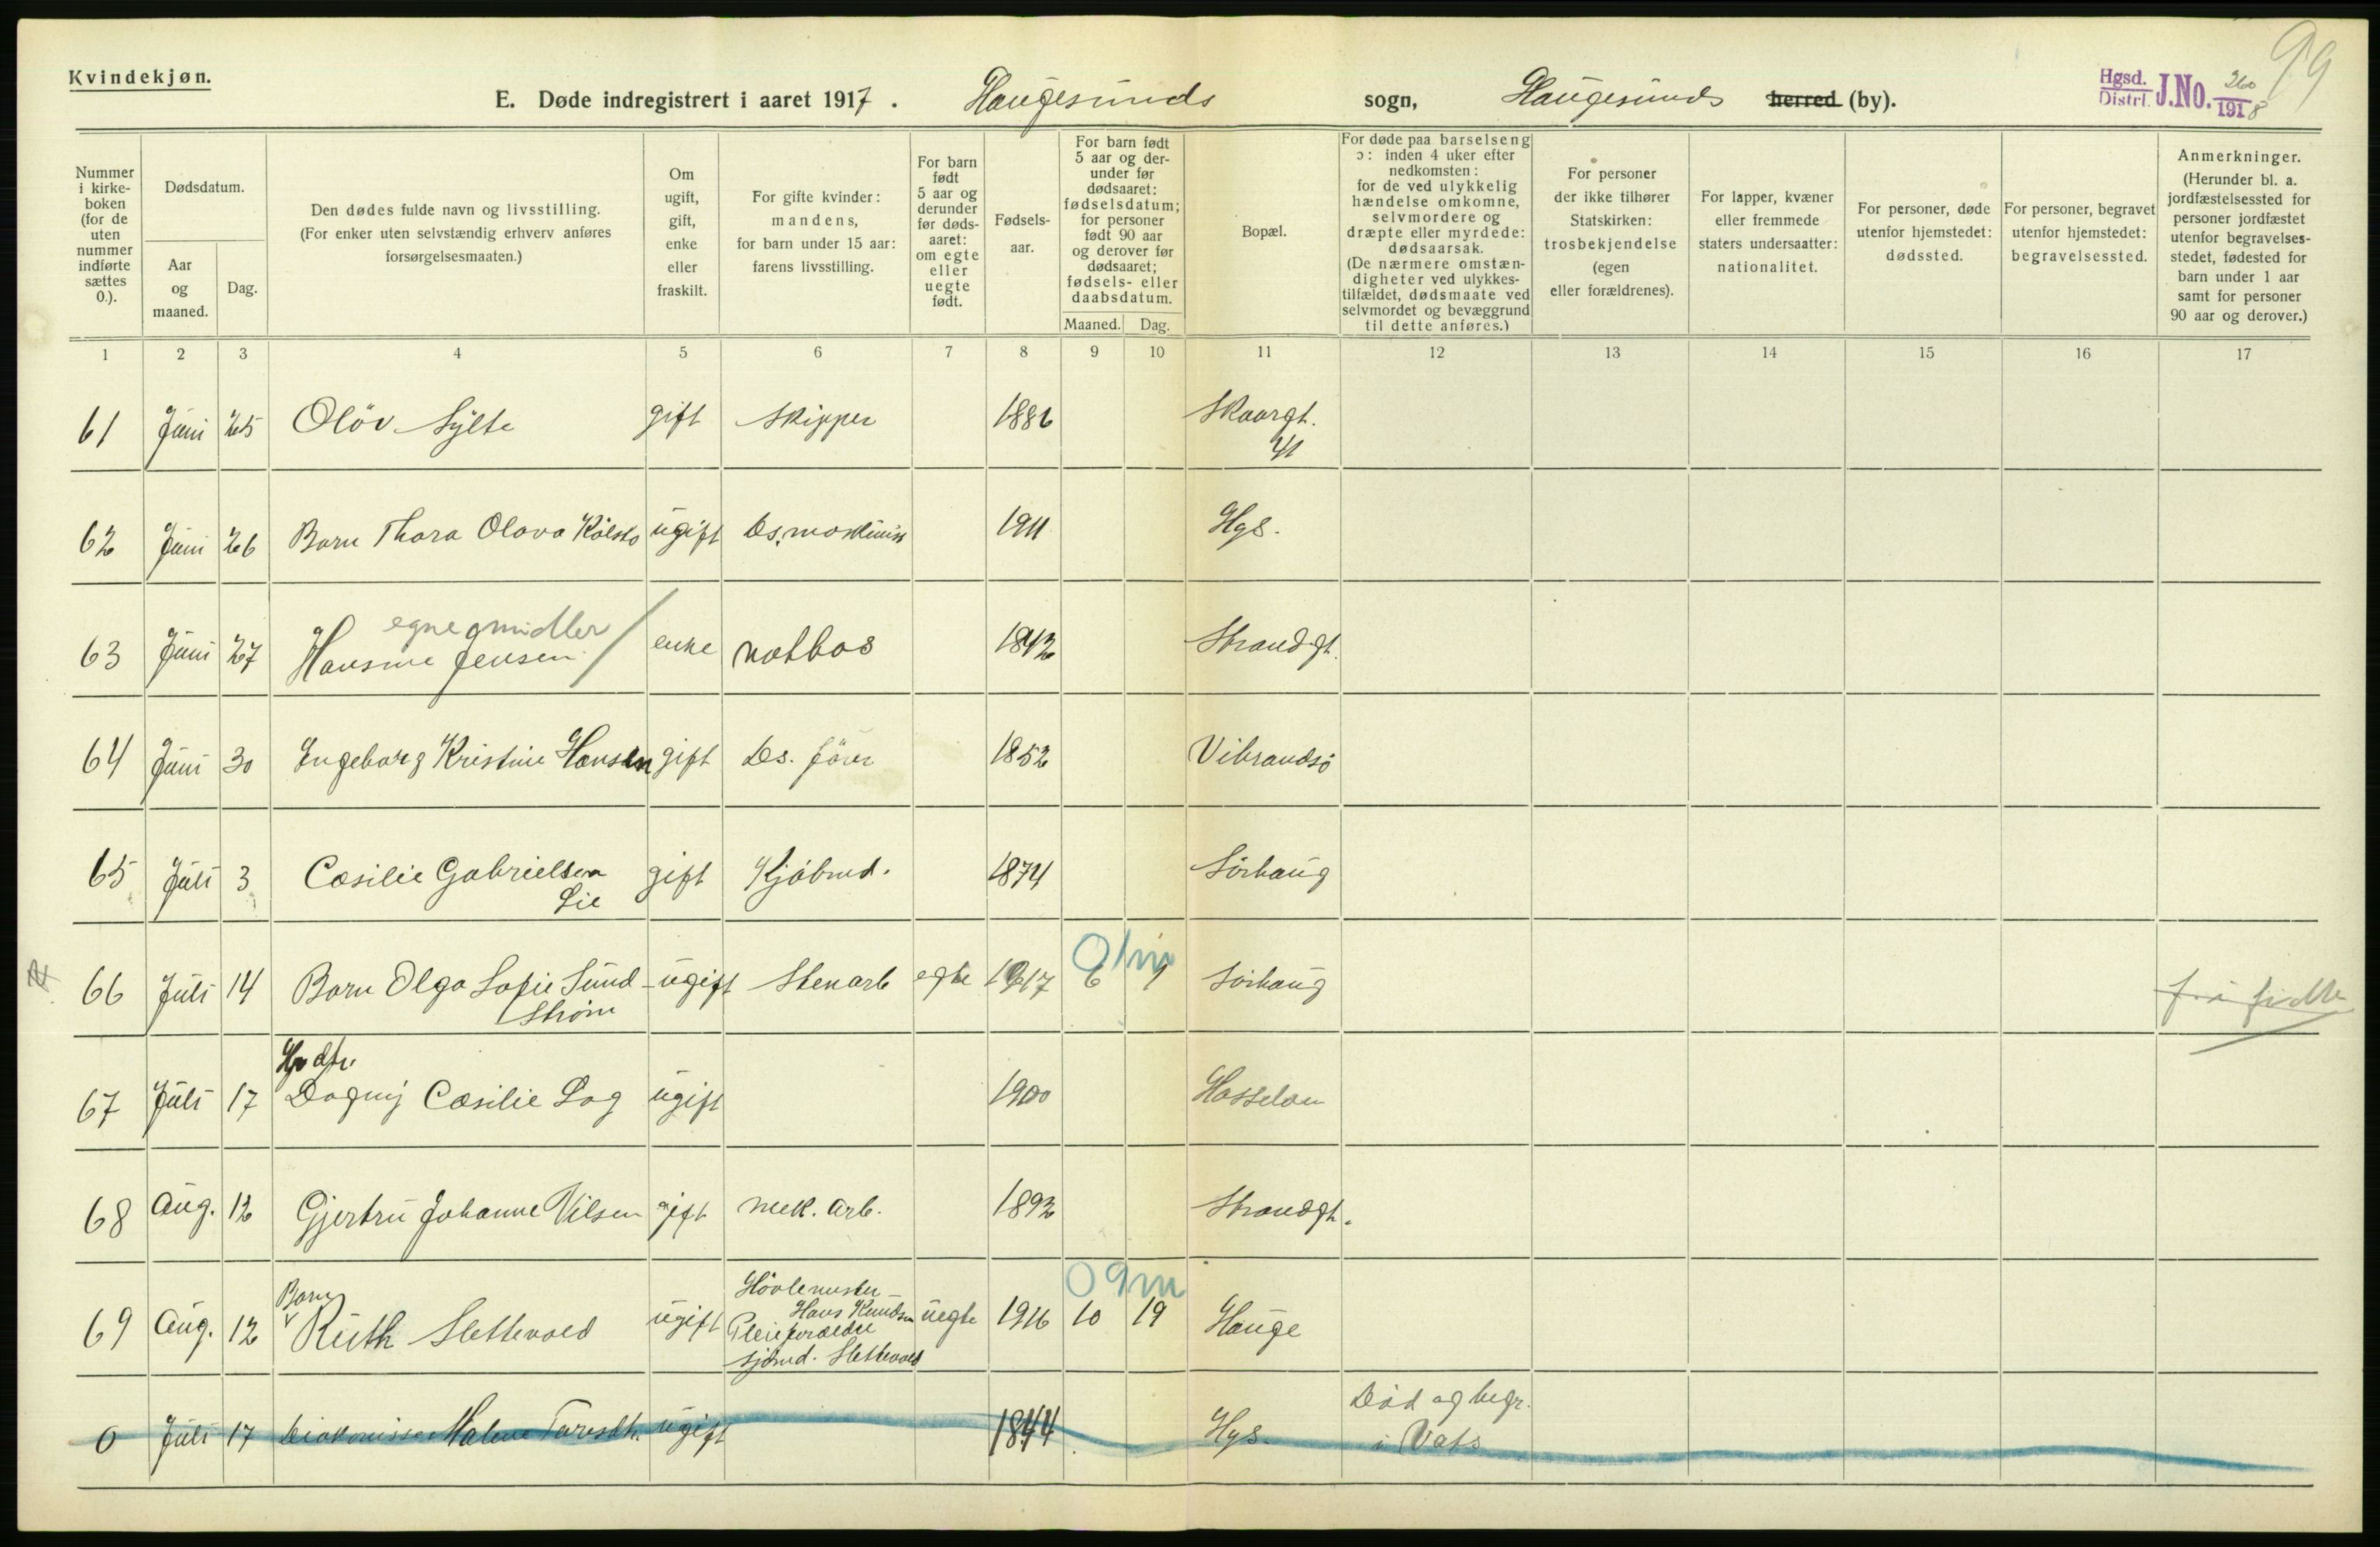 Kvindekjøn.
E. Døde indregistrert i aaret 1917. Haugesunds sogn, Haugesunds herred (by).
Hgsd. Distrl. J.No. 260/1918
99
Nummer i kirkeboken (for de uten nummer indførte sættes 0.).
Dødsdatum.
Aar og maaned.
Dag.
Den dødes fulde navn og livsstilling.
(For enker uten selvstændig erhverv anføres forsørgelsesmaaten.)
Om ugift, gift, enke eller fraskilt.
For gifte kvinder: mandens, for barn under 15 aar: farens livsstilling.
For barn født 5 aar og derunder før dødsaaret: om egte eller uegte født.
Fødselsaar.
For barn født 5 aar og derunder før dødsaaret: fødselsdatum; for personer født 90 aar og derover før dødsaaret; fødsels- eller daabsdatum.
Maaned. Dag.
Bopæl.
For døde paa barselseng ɔ: inden 4 uker efter nedkomsten: for de ved ulykkelig hændelse omkomne, selvmordere og dræpte eller myrdede: dødsaarsak. (De nærmere omstændigheter ved ulykkestilfældet, dødsmaate ved selvmordet og bevæggrund til dette anføres.)
For personer der ikke tilhører Statskirken: trosbekjendelse (egen eller forældrenes).
For lapper, kvæner eller fremmede staters undersaatter: nationalitet.
For personer, døde utenfor hjemstedet: dødssted.
For personer, begravet utenfor hjemstedet: begravelsessted.
Anmerkninger. (Herunder bl. a. jordfæstelsessted for personer jordfæstet utenfor begravelsesstedet, fødested for barn under 1 aar samt for personer 90 aar og derover.)
1 2 3 4 5 6 7 8 9 10 11 12 13 14 15 16 17
61 Juni 25 Olöv Sylte gift Skipper 1886 Skaargt. 41
62 Juni 26 Barn Thora Olava Kolstø ugift Ds. maskinist 1911 Hgs.
egne midler
63 Juni 27 Hansine Jensen / enke notbas 1842 Strandgt.
64 Juni 30 Engeborg Kristine Hansen gift Ds. förer 1852 Vibrandsö
65 Juli 3 Cæsilie Gabrielsen Lie gift Kjöbmd. 1874 Sörhaug
0 1 m
66 Juli 14 Barn Olga Sofie Sundström ugift Stenarb egte 1917 6 9 Sörhaug
67 Juli 17 Dagny Cæsilie Log ugift 1900 Hasseløen
68 Aug. 12 Gjertru Johanne Vilsen gift mek. arb. 1892 Strandgt.
0 9 m
69 Aug. 12 Barn Ruth Slettevold ugift Hövlemester Hans Knudsen
Pleieforældre
sjömd. Slettevold uegte 1916 10 19 Hauge
0 Juli 17 Diakonisse Malene ugift 1844 Hgs. Död og begr. i Vats